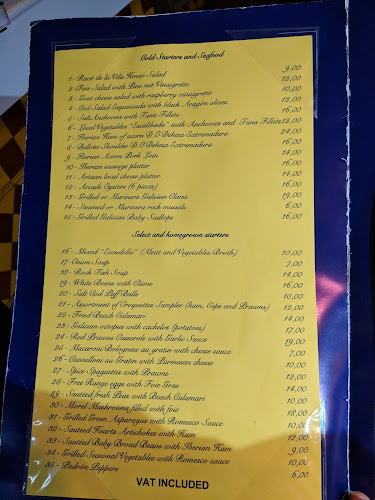 Cold-Starters and Seafood
1 - Racó de la Vila House Salad 9,00
2 - Foie Salad with Pine nut Vinaigrette 12,00
3 - Goat cheese salad with raspberry vinaigrette 10,00
4 - Cod Salad Esqueixada with black Aragón olives 12,00
5 - Salt Anchovies with Tuna Fillets 16,00
6 - Local Vegetables "Escalibada" with Anchovies and Tuna Fillets 12,00
7 - Iberian Ham of acorn D.O Dehesa Extremadura 24,00
8 - Bellota Shoulder D.O Dehesa Extremadura 16,00
9 - Iberian Acorn Pork Loin 16,00
10 - Iberian sausage platter 14,00
11 - Artisan local cheese platter 14,00
12 - Arcade Oysters (6 pieces) 16,00
13 - Grilled or Marinera Galician Clams 19,00
14 - Steamed or Marinera rock mussels 6,00
15 - Grilled Galician Baby Scallops 16,00
Select and homegrown starters
16 - Mixed "Escudella" (Meat and Vegetables Broth) 10,00
17 - Onion Soup 7,00
18 - Rock Fish Soup 14,00
19 - White Beans with Clams 16,00
20 - Salt Cod Puff Balls 10,00
21 - Assortment of Croquettes Sampler (ham, Ceps and Prawns) 12,00
22 - Fried Beach Calamari 14,00
23 - Galician octopus with cachelos (potatoes) 17,00
24 - Red Prawns Casserole with Garlic Sauce 19,00
25 - Macaroni Bolognese au gratin with cheese sauce 7,00
26 - Cannelloni au Gratin with Parmesan cheese 10,00
27 - Spice Spaguettis with Prawns 12,00
28 - Free Range eggs with Foie Gras 14,00
29 - Sautéed fresh Peas with Beach Calamari 10,00
30 - Morel Mushrooms filled with foie 18,00
31 - Grilled Green Asparagus with Romesco Sauce 10,00
32 - Sautéed Hearts Artichokes with Ham 12,00
33 - Sautéed Baby Broad Beans with Iberian Ham 9,00
34 - Grilled Seasonal Vegetables with Romesco sauce 10,00
35 - Padrón Peppers 6,00
VAT INCLUDED